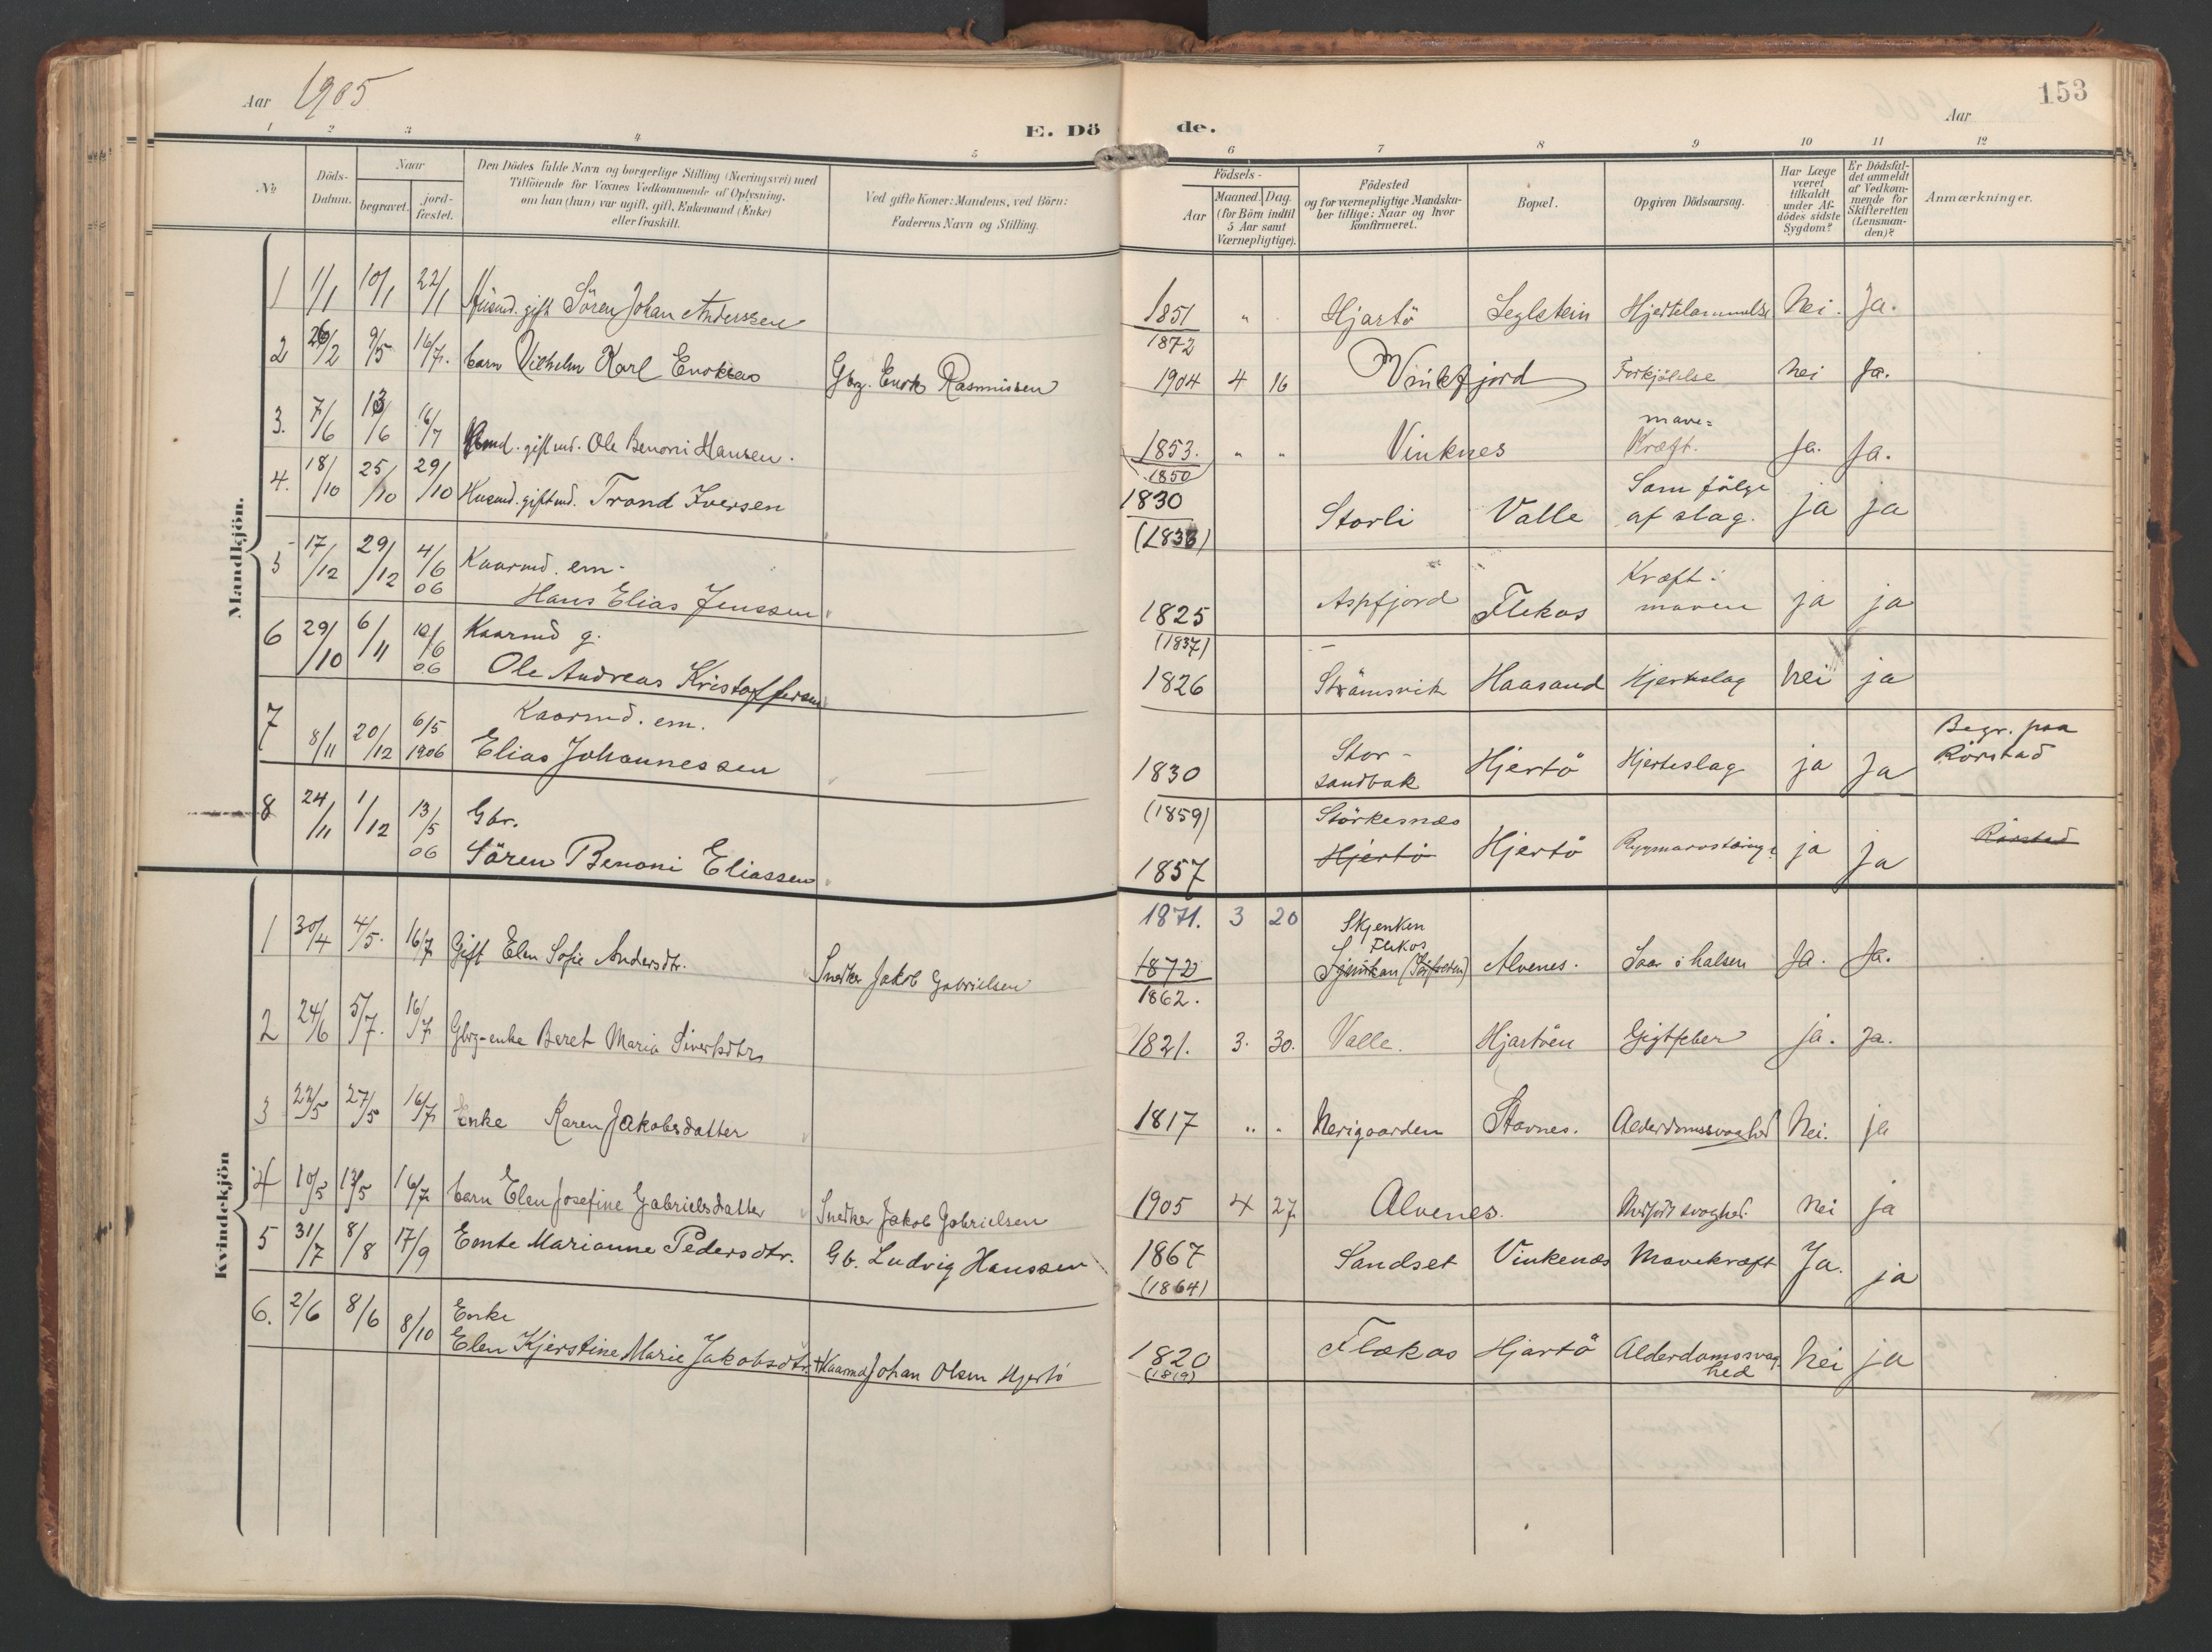 Aar 1905
E. Dö de.
Aar
153
1 2 3 4 5 6 7 8 9 10 11 12
No
Döds-
Datum.
Naar
begravet.
jord-
fæstet.
Den Dödes fulde Navn og borgerlige Stilling (Næringsvei) med
Tilföiende for Voxnes Vedkommende af Oplysning,
om han (hun) var ugift, gift, Enkemand (Enke)
eller fraskilt.
Ved gifte Koner: Mandens, ved Börn:
Faderens Navn og Stilling.
Födsels-
Aar
Maaned. Dag.
(for Börn indtil
5 Aar samt
Værnepligtige).
Födested
og for værnepligtige Mandska-
ber tillige: Naar og hvor
konfirmeret.
Bopæl.
Opgiven Dödsaarsag.
Har Læge
været
tilkaldt
under Af-
dödes sidste
Sygdom?
Er Dödsfal-
det anmeldt
af Vedkom-
mende for
Skifteretten
(Lensman-
den)?
Anmærkninger.
Mandkjön.
1 1/1 10/1 22/1 Husmd. gift Sören Johan Anderssen 1851 " Hjartö Seglstein Hjertelammelse Nei. Ja.
1872
2 26/2 9/5 16/7. barn Vilhelm Karl Enoksen Gbrg. Enok Rasmussen 1904 4 16 Vinkfjord Forkjölelse Nei Ja.
3. 7/6 13/6 16/7 gift md. Ole Benoni Hansen. 1853. " " Vinknes mave=
Kræft. Ja. Ja.
1850
4. 18/10 25/10 29/10 Husmd. gift md. Trond Iversen 1830 Storli Valle Som fölge
af slag. ja ja
(1833)
5 17/12 29/12 4/6 06 Kaarmd. em.
Hans Elias Jenssen 1825 Aspfjord Flekos Kræft i
maven ja ja
(1837)
6 29/10 6/11 10/6 06 Kaarmd g.
Ole Andreas Kristoffersen 1826 Strömsvik Haasand Hjerteslag Nei ja
7 8/11 20/12 6/5 1906 Kaarmd. em.
Elias Johannessen 1830 Stor-
sandvak Hjertö Hjerteslag ja Ja Begr. paa
Rörstad
(1859)
8 24/11 1/12 13/5 06 Gbr.
Sören Benoni Eliassen 1857 Störkesnæs
Hjertö Hjertö Rygmarvstæring ja Ja Rörstad
Kvindekjön
1871. 3 20 Skjenken
Flekos
1 30/4 4/5. 16/7 Gift Elen Sofie Andersdtr. Snedker Jakob Gabrielsen 1872 Alvenes. Saar i halsen Ja. Ja.
1862.
2 24/6 5/7. 16/7 Gbrg-enke Beret Maria Sivertsdtr 1821. 3. 30. Valle. Hjartöen Gigtfeber ja. Ja.
3 22/5 27/5 16/7 Enke Karen Jakobsdatter 1817 " " Nerigaarden Stavnes. Alderdomssvaghed Nei. ja
4 10/5 13/5 16/7 barn Elen Josefine Gabrielsdatter Snedker Jakob Gabrielsen 1905 4 27 Alvenes. Medfödt svaghed. Nei ja
5 31/7 8/8 17/9 Emte Marianne Pedersdtr. Gb. Ludvig Hanssen 1867 Sandset Vinkenæs Mavekræft Ja. ja
(1864)
6. 2/6 8/6 8/10 Enke
Elen Kjerstine Marie Jakobsdtr. + Kaarmd Johan Olsen Hjertö 1820 Flækos Hjartö Alderdomssvag-
hed Nei ja
(1819)